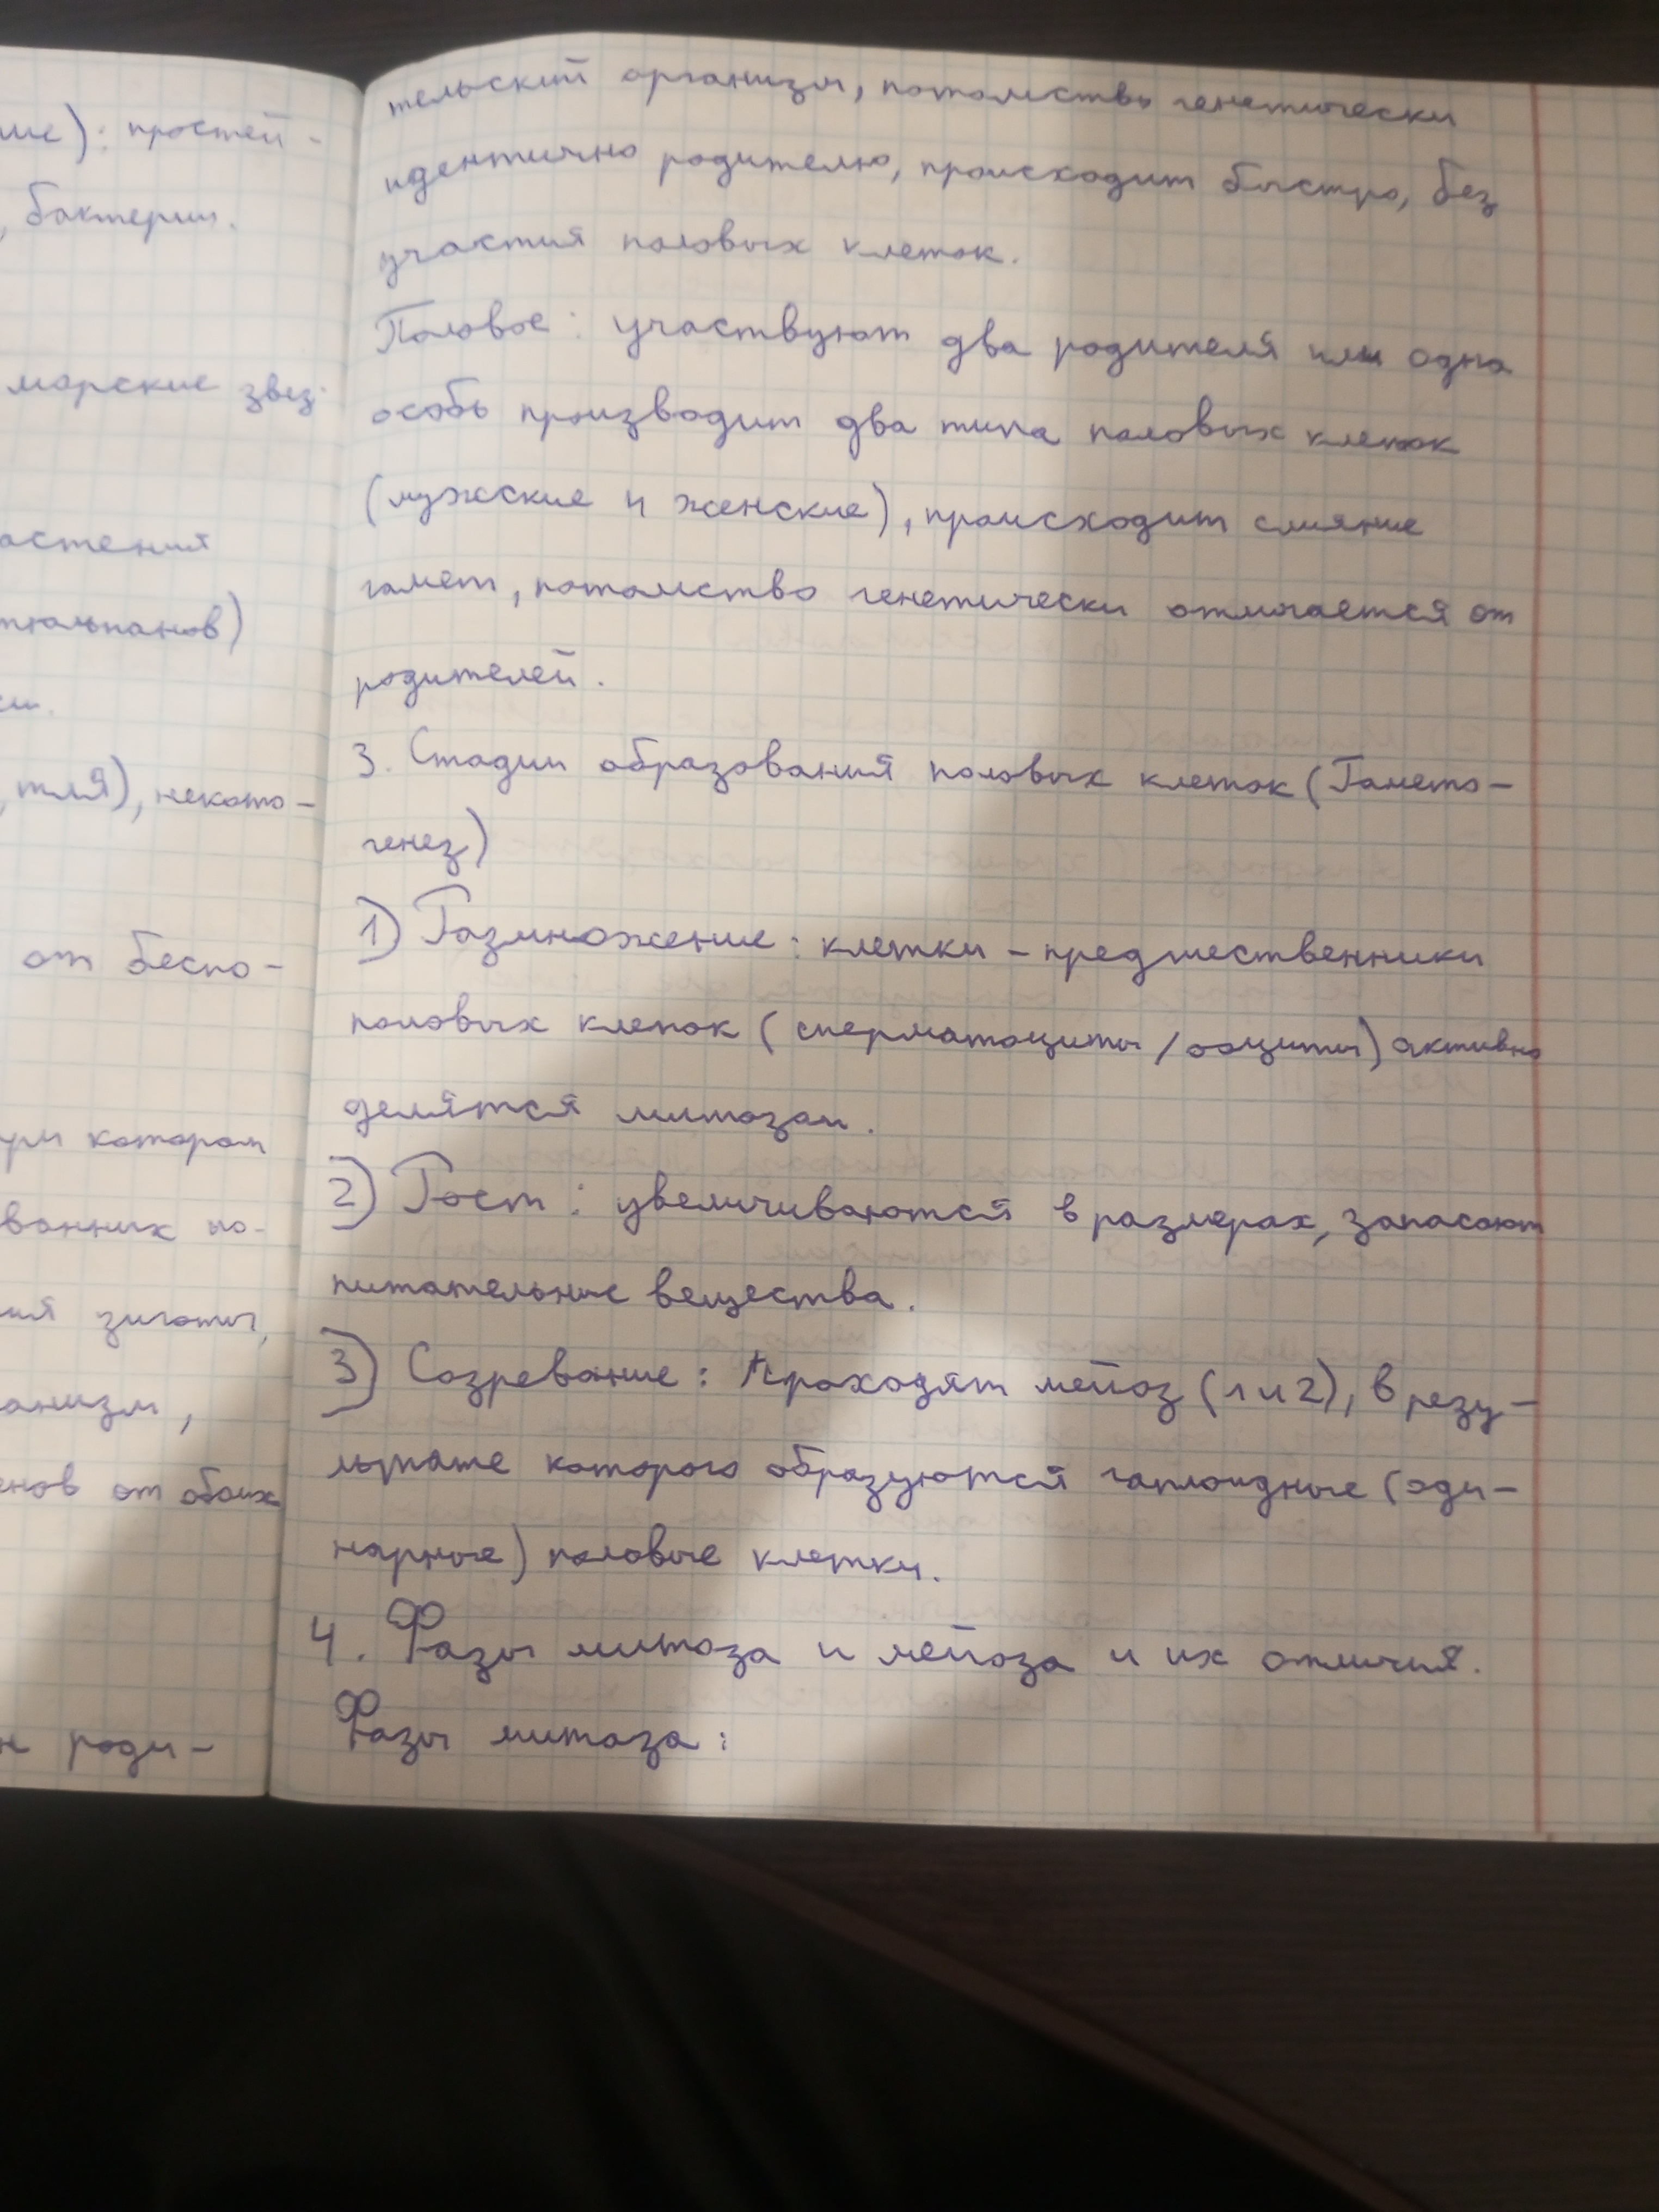 ие): простей-
, бактерии.
морские звез-
астения
тюльпанов)
, тля), некото-
от беспо-
при котором
ванных по-
ия зиготы,
анизм,
енов от обоих
роди-
тельский организм, потомство генетически
идентично родителю, происходит быстро, без
участия половых клеток.
Половое: участвуют два родителя или одна
особь производит два типа половых клеток
(мужские и женские), происходит слияние
гамет, потомство генетически отличается от
родителей.
3. Стадии образования половых клеток (Гамето-
генез)
1) Размножение: клетки-предшественники
половых клеток (сперматоциты/ооциты) активно
делятся митозом.
2) Рост: увеличиваются в размерах, запасают
питательные вещества.
3) Созревание: проходят мейоз (1 и 2), в резу-
льтате которого образуются гаплоидные (оди-
нарные) половые клетки.
4. Фазы митоза и мейоза и их отличия.
Фазы митоза: